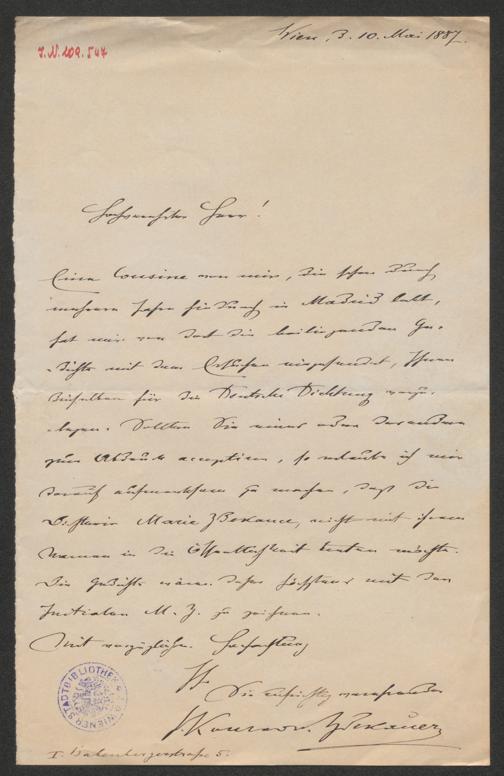 Wien, 3. 10. Mai 1887.
I.N. 109.547
Hochverehrter Herr!
Eine Cousine von mir, die schon durch
mehrere Jahre hindurch in Madrid lebt,
hat mir von dort die beiliegenden Ge-
dichte mit dem Ersuchen eingesendet, Ihnen
dieselben für die Deutsche Dichtung vorzu-
legen. Sollten Sie eines oder das andere
zum Abdruck acceptiren, so erlaube ich mir
darauf aufmerksam zu machen, daß die
Dichterin Marie Zdekauer, nicht mit ihrem
Namen in die Öffentlichkeit treten möchte.
Die Gedichte wären daher höchstens mit den
Initialen M. Z. zu zeichnen.
Mit vorzüglicher Hochachtung
Ihr
Sie aufrichtig verehrender
Konrad v. Zdekauer
WIENER STADTBIBLIOTHEK
I. Babenbergerstraße 5.